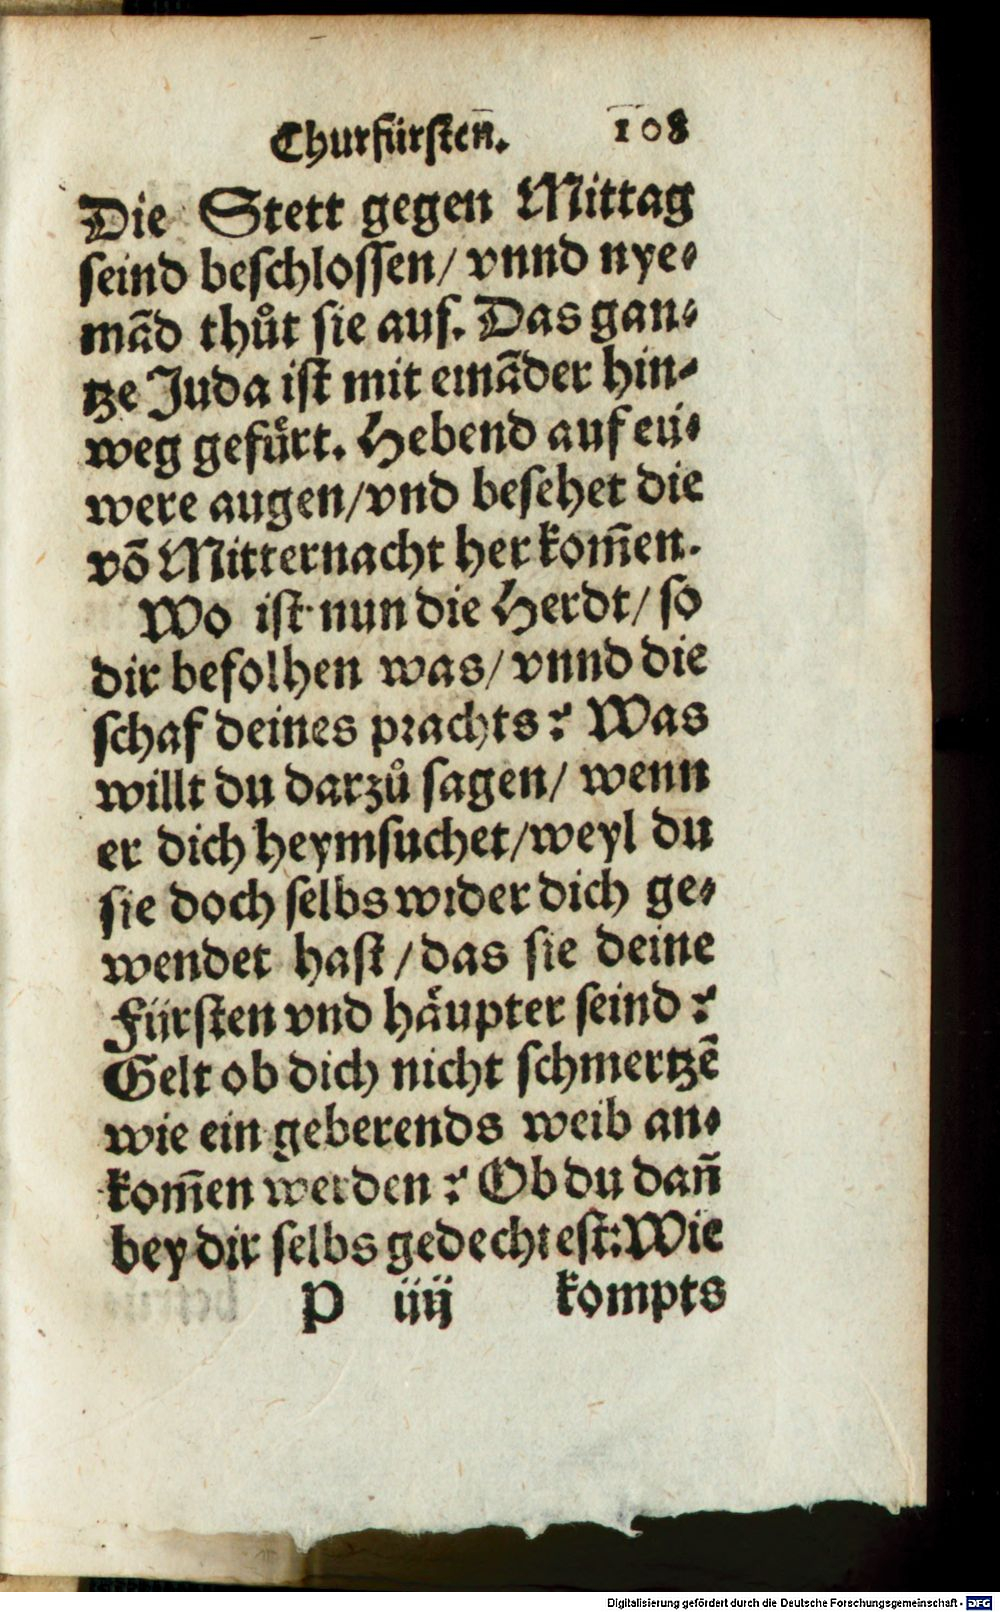 Churfürsten̄. 108
Die Stett gegen Mittag
seind beschlossen/ vnnd nye-
mãd thůt sie auf. Das gan-
tze Juda ist mit einãder hin-
weg gefuͤrt. Hebend auf eü-
were augen/vnd besehet die
võ Mitternacht her kom̄en.
Wo ist nun die Herdt/ so
dir befolhen was/ vnnd die
schaf deines prachts? Was
willt du darzů sagen/ wenn
er dich heymsuchet/weyl du
sie doch selbs wider dich ge-
wendet hast/das sie deine
Fürsten vnd haͤupter seind?
Gelt ob dich nicht schmertzẽ
wie ein geberends weib an-
kom̄en werden? Ob du dan̄
bey dir selbs gedechtest: Wie
P iiij kompts
Digitalisierung gefördert durch die Deutsche Forschungsgemeinschaft - DFG